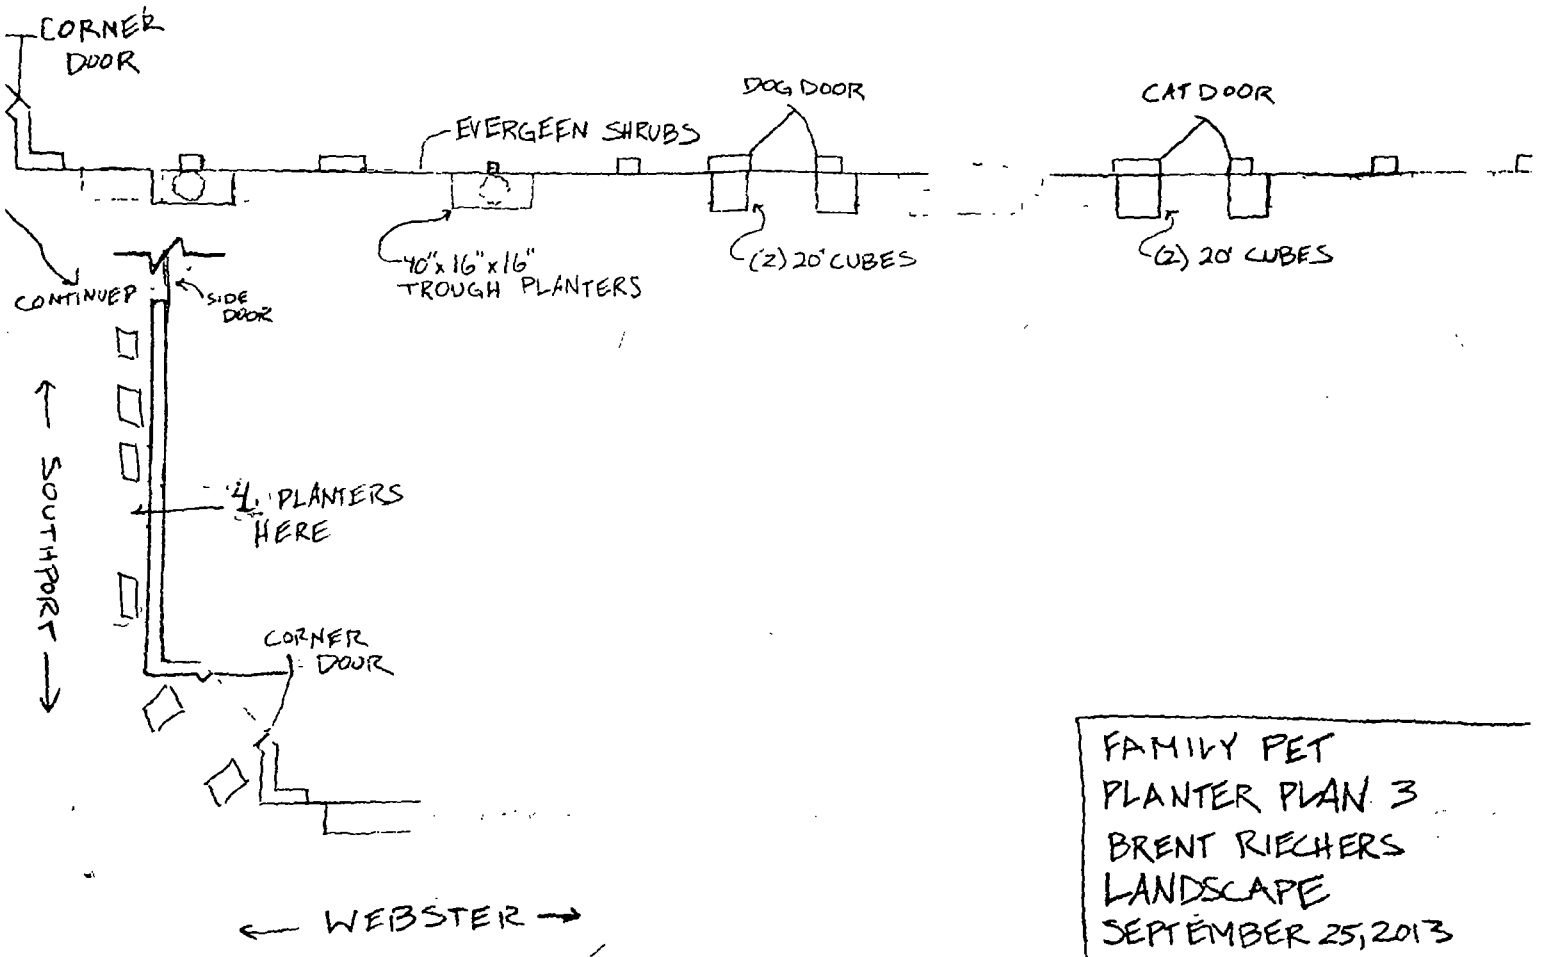 CORNER
DOOR
DOG DOOR
CAT DOOR
EVERGEEN SHRUBS
40"x16"x16"
TROUGH PLANTERS
(2) 20" CUBES
(2) 20" CUBES
CONTINUED
SIDE
DOOR
SOUTHPORT
4 PLANTERS
HERE
CORNER
DOOR
WEBSTER
FAMILY PET
PLANTER PLAN 3
BRENT RIECHERS
LANDSCAPE
SEPTEMBER 25, 2013